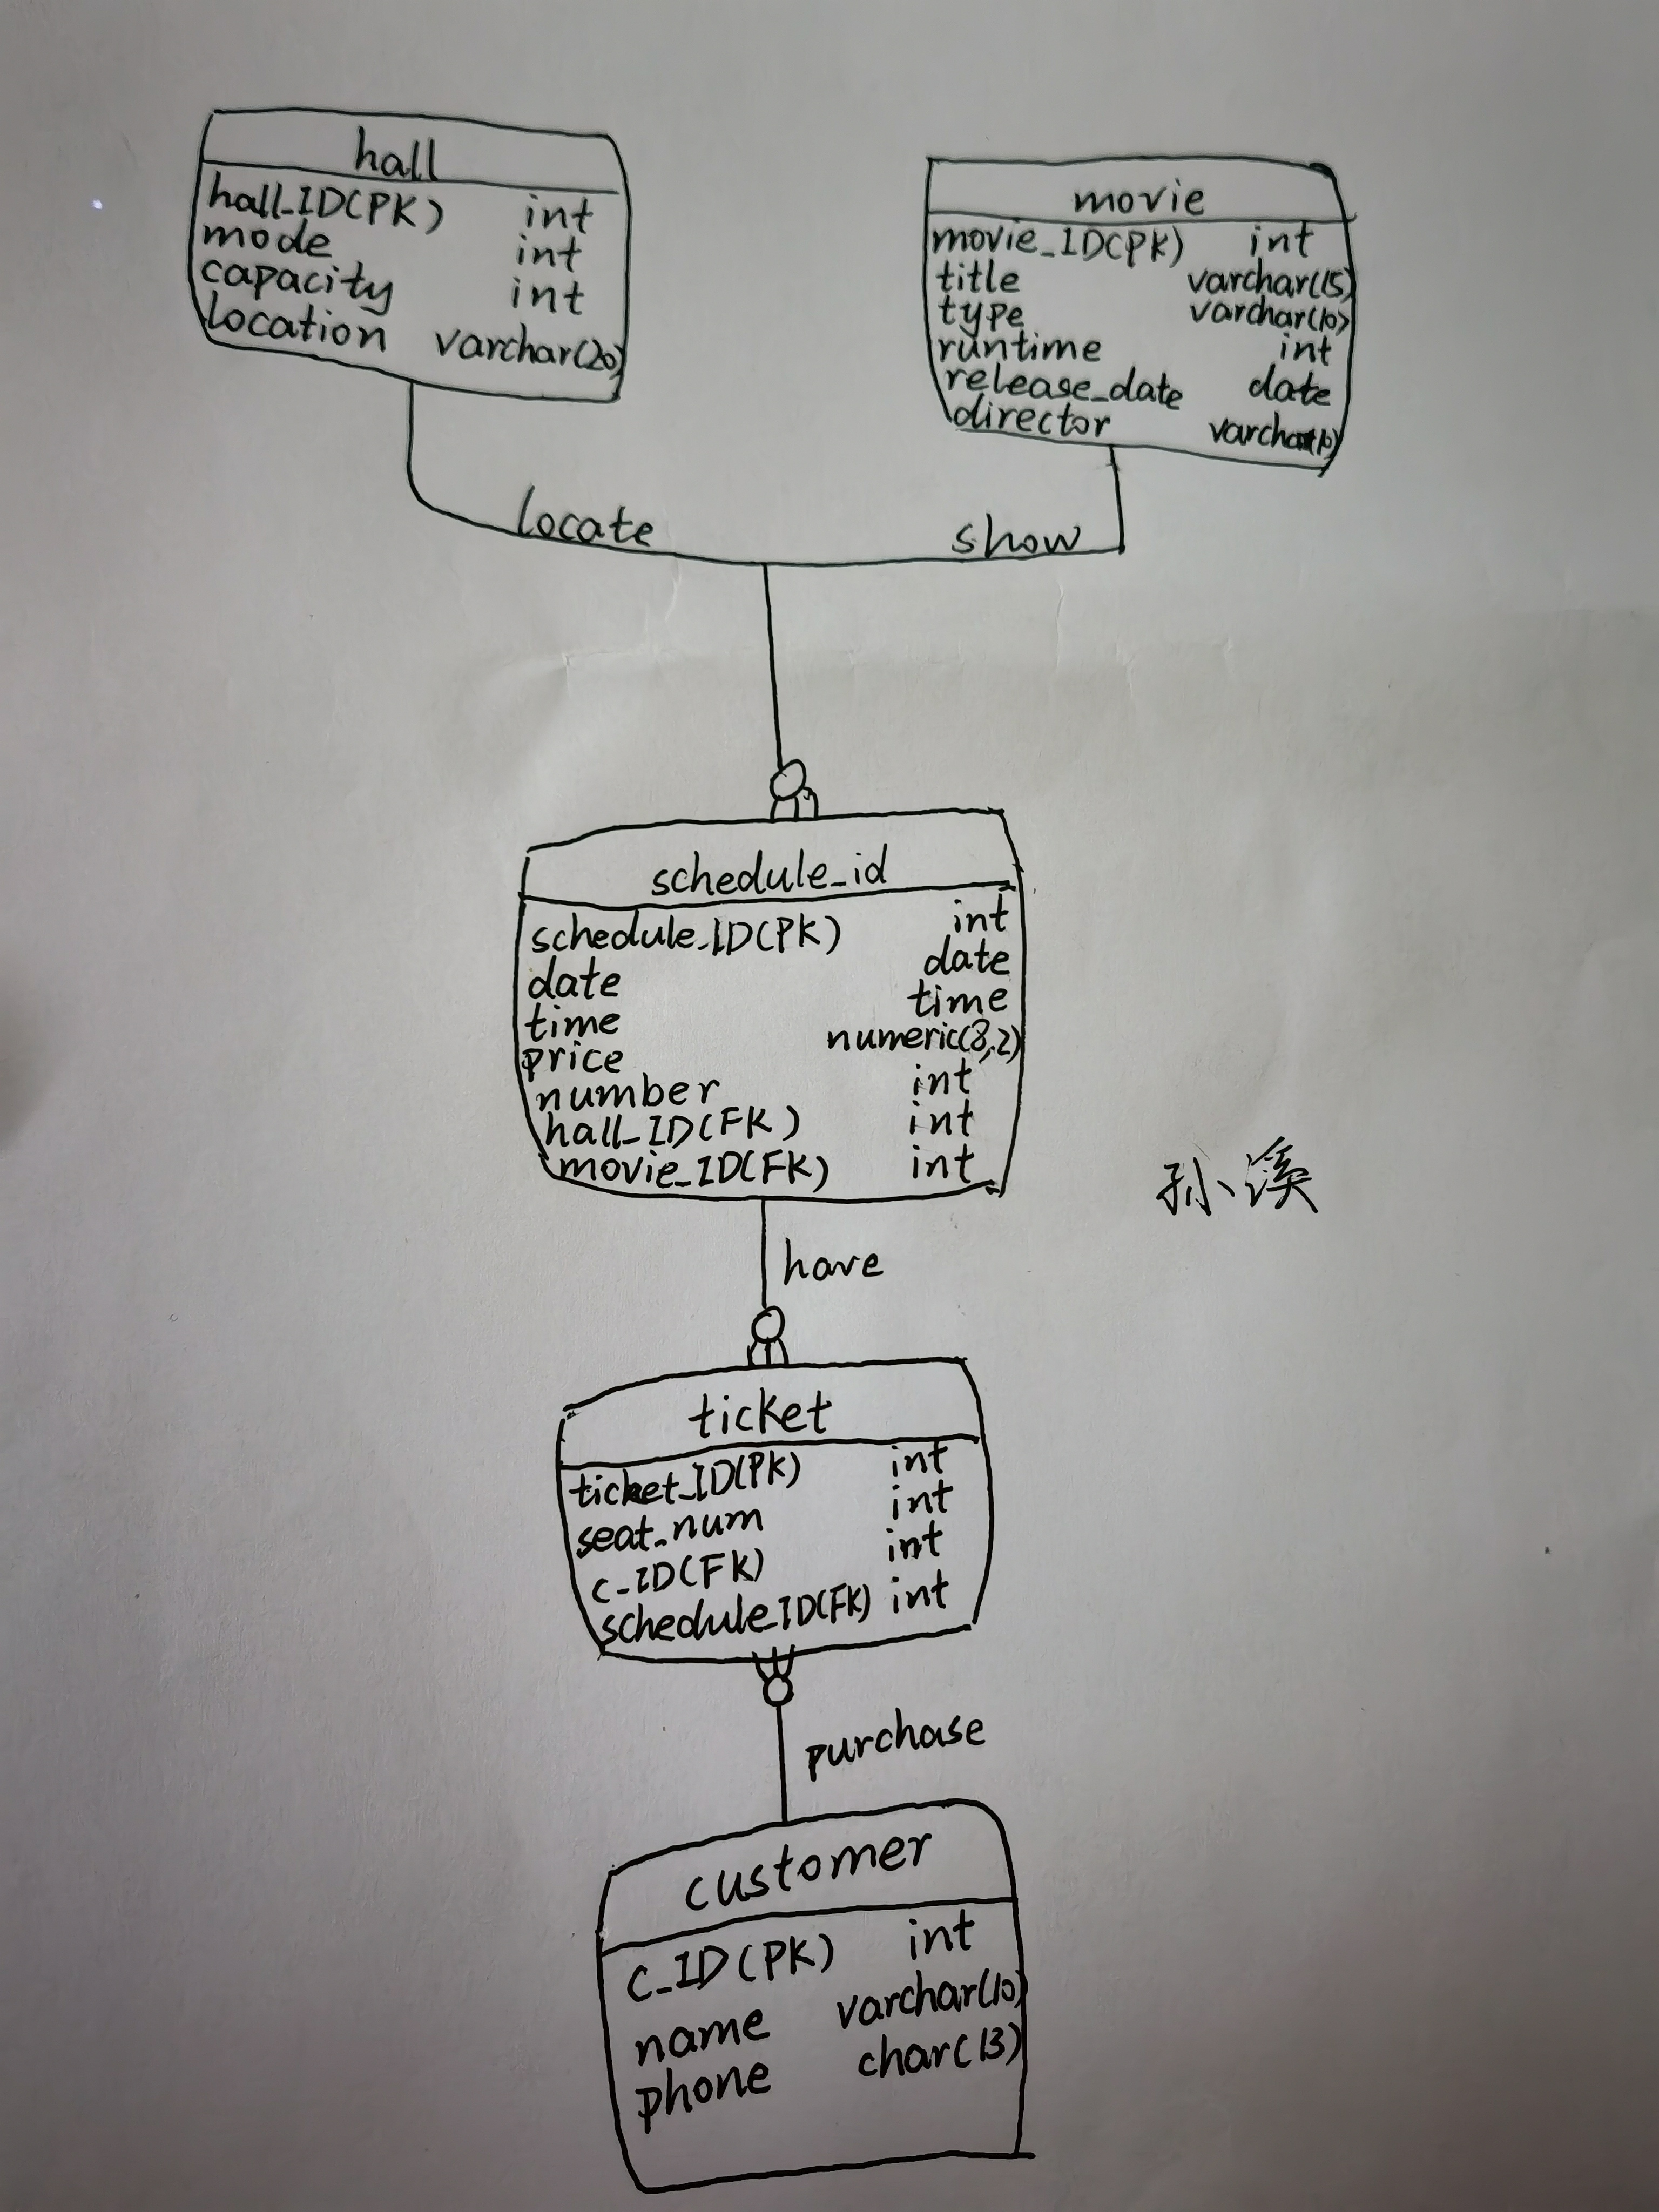 hall
hall_ID(PK) int
mode int
capacity int
location varchar(20)
movie
movie_ID(PK) int
title varchar(15)
type varchar(10)
runtime int
release_date date
director varchar(10)
locate
show
schedule_id
schedule_ID(PK) int
date date
time time
price numeric(8,2)
number int
hall_ID(FK) int
movie_ID(FK) int
孙溪
have
ticket
ticket_ID(PK) int
seat_num int
c_ID(FK) int
schedule_ID(FK) int
purchase
customer
c_ID(PK) int
name varchar(10)
phone char(13)